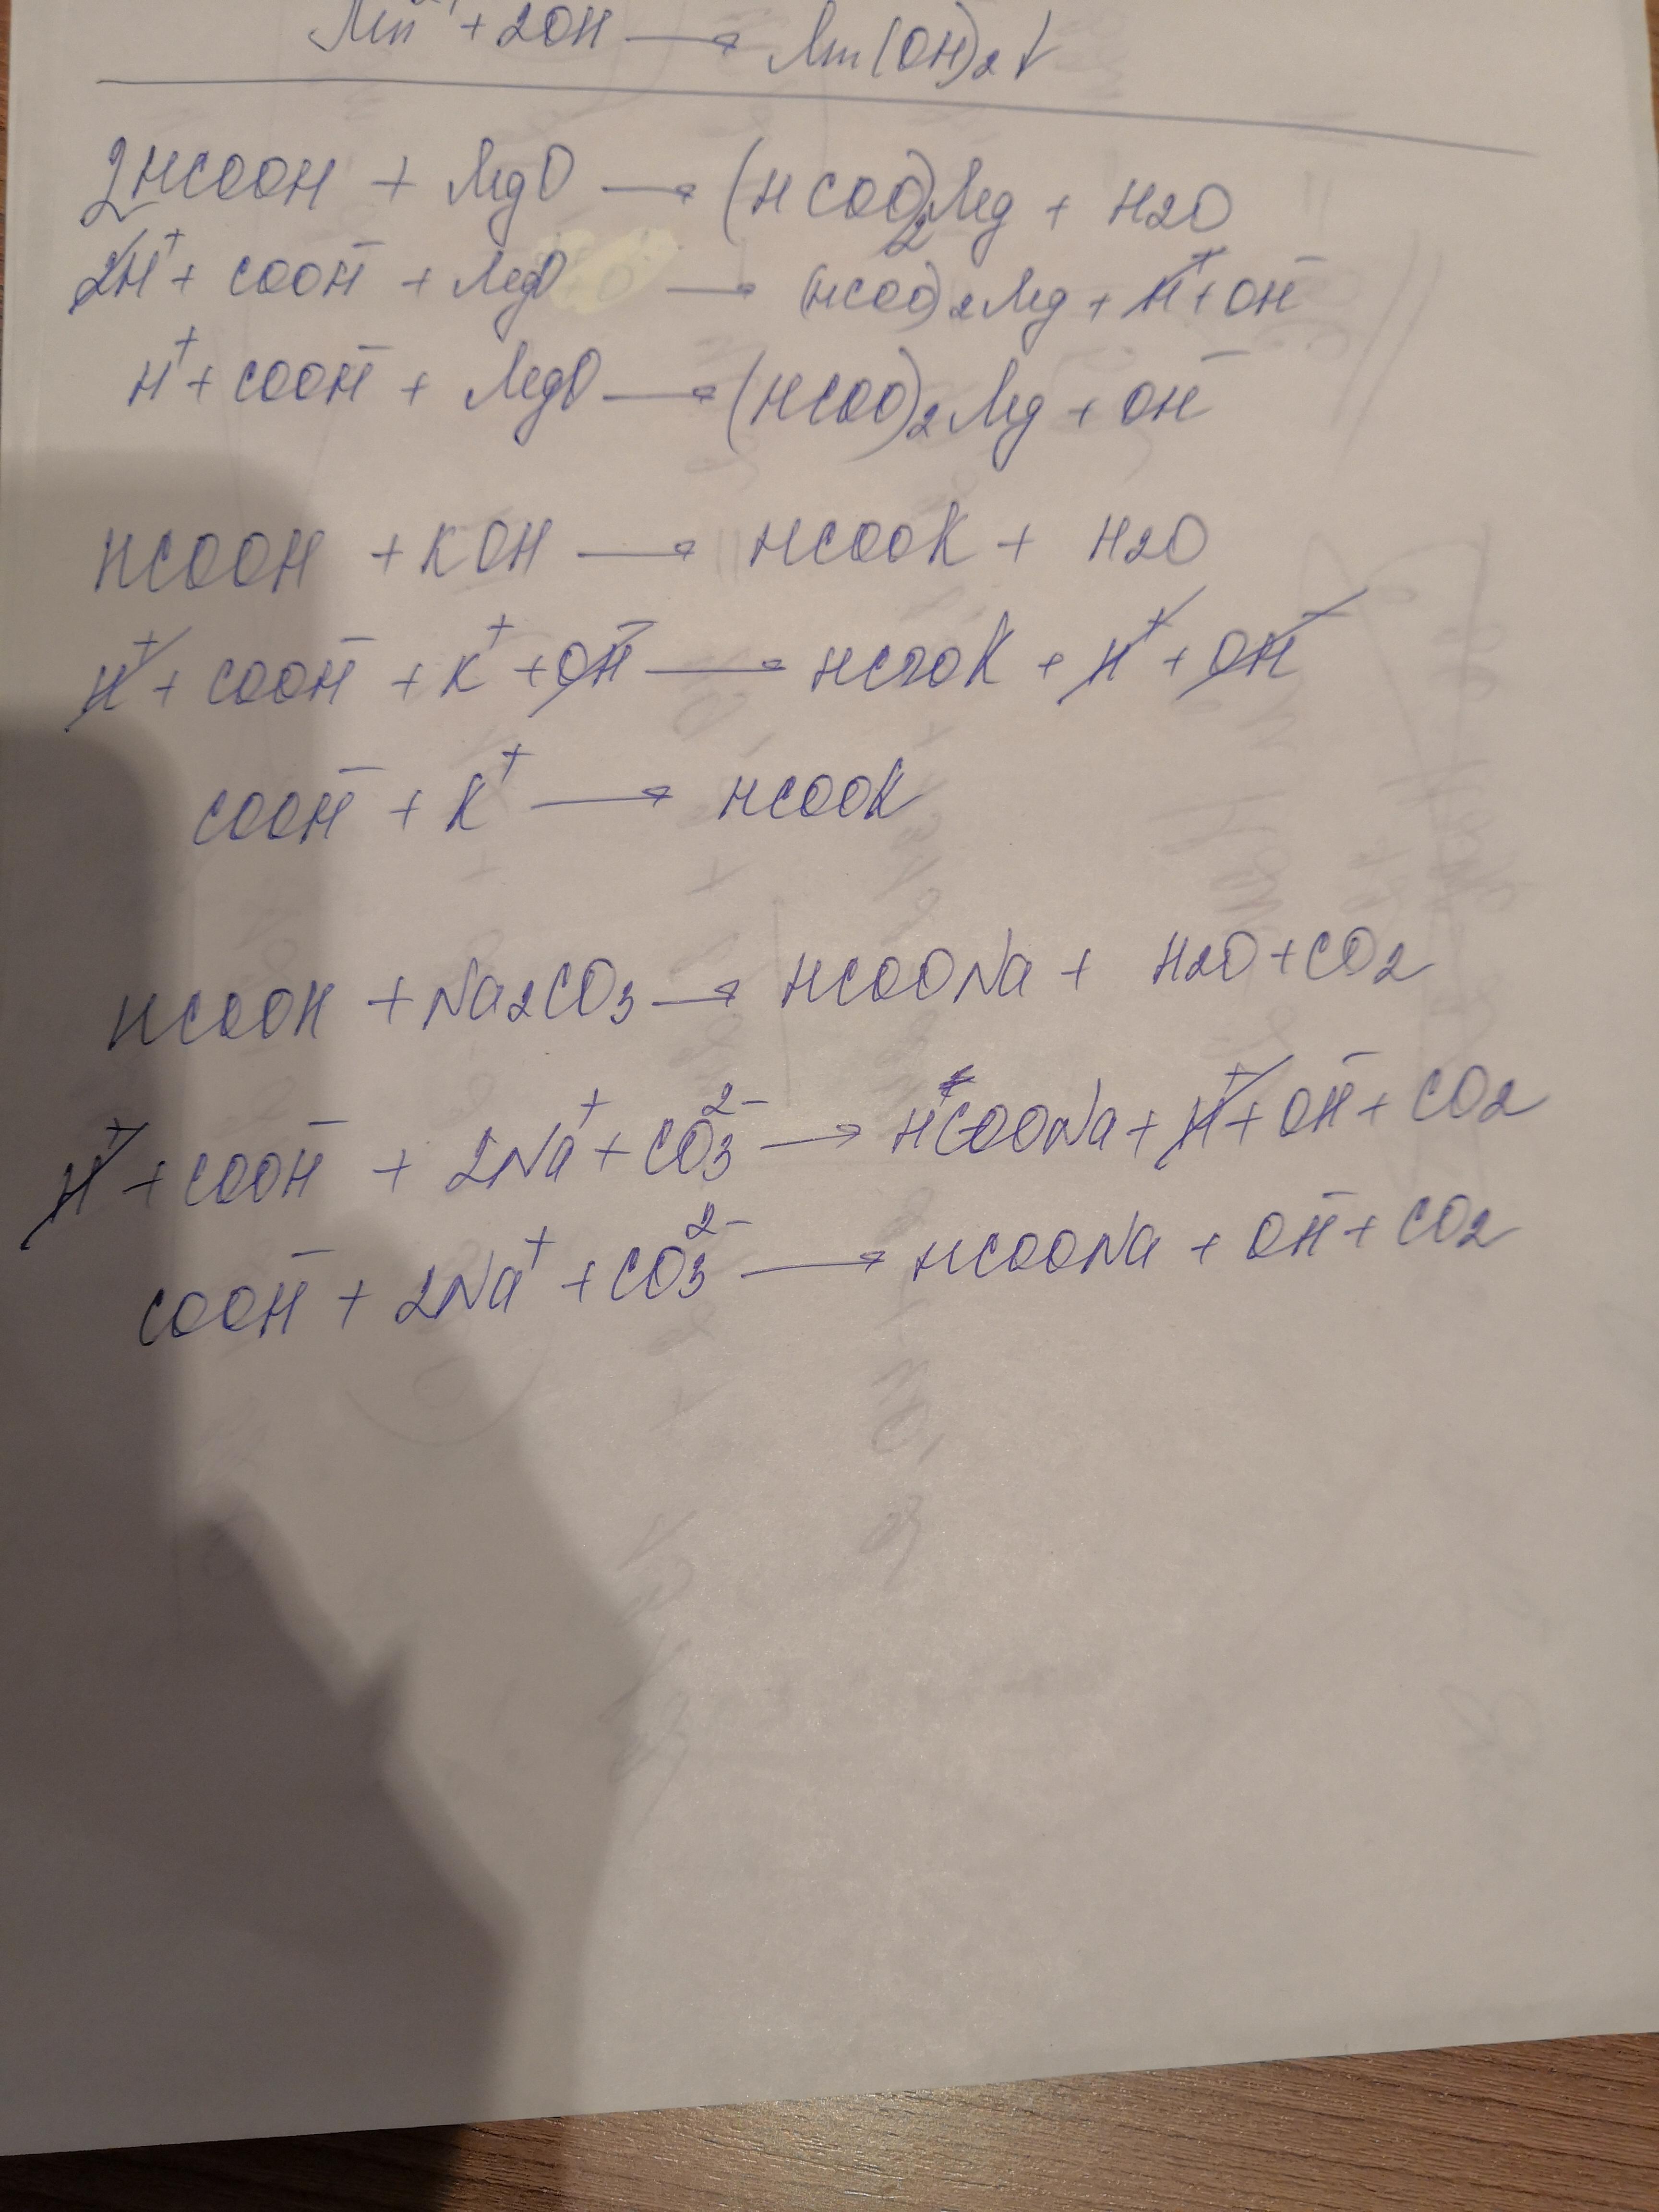 Mn²⁺ + 2OH⁻ → Mn(OH)2↓
2HCOOH + MgO → (HCOO)2Mg + H2O
2H⁺ + COOH⁻ + MgO → (HCOO)2Mg + H⁺ + OH⁻
H⁺ + COOH⁻ + MgO → (HCOO)2Mg + OH⁻
HCOOH + KOH → HCOOK + H2O
H⁺ + COOH⁻ + K⁺ + OH⁻ → HCOOK + H⁺ + OH⁻
COOH⁻ + K⁺ → HCOOK
HCOOH + Na2CO3 → HCOONa + H2O + CO2
H⁺ + COOH⁻ + 2Na⁺ + CO3²⁻ → HCOONa + H⁺ + OH⁻ + CO2
COOH⁻ + 2Na⁺ + CO3²⁻ → HCOONa + OH⁻ + CO2